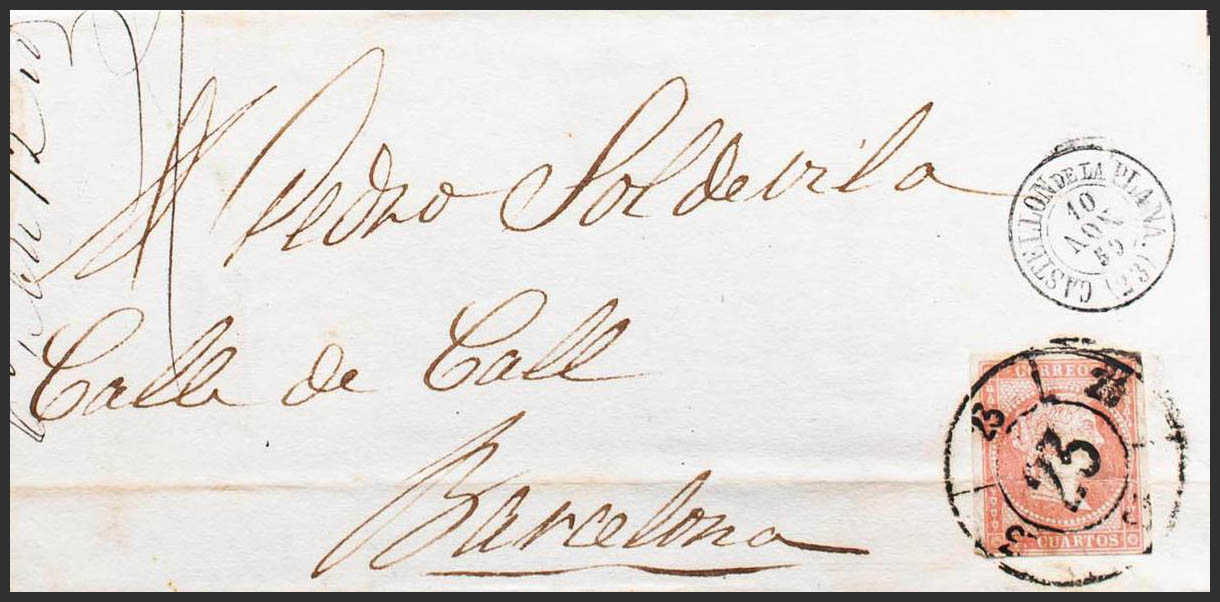 Pedro Soldevila
Calle de Call
Barcelona
CASTELLON DE LA PLANA. (32)
10
AGO
59
CORREOS
23
23
23
CUARTOS